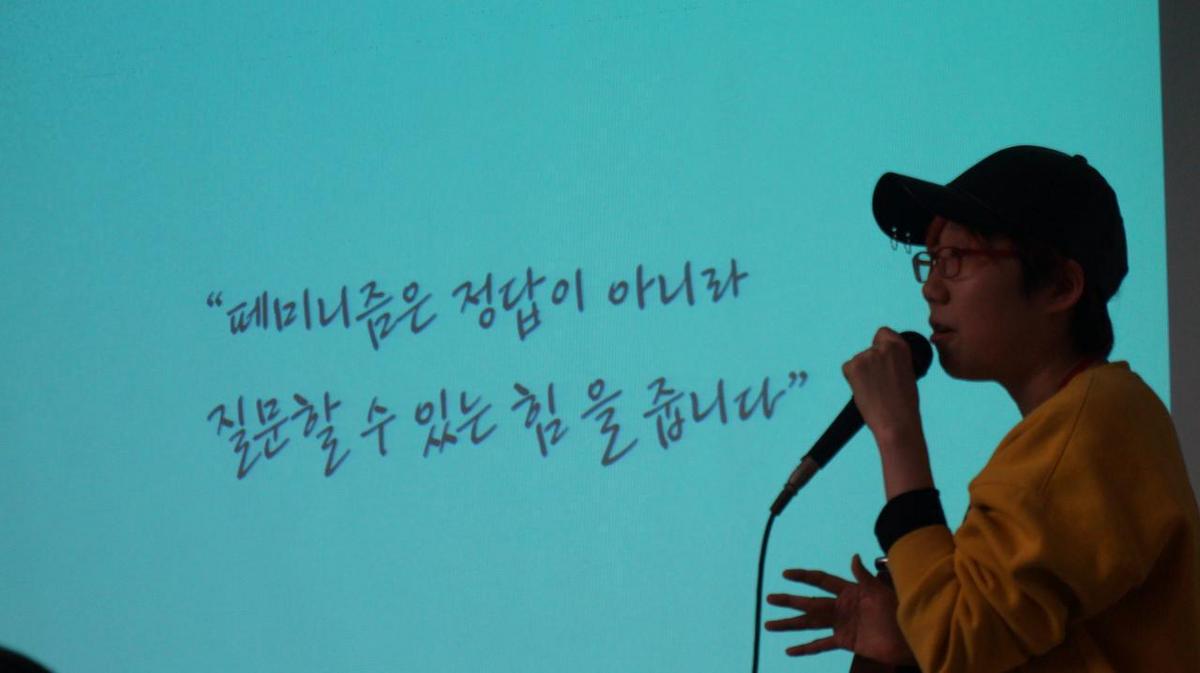 “페미니즘은 정답이 아니라
질문할 수 있는 힘을 줍니다”